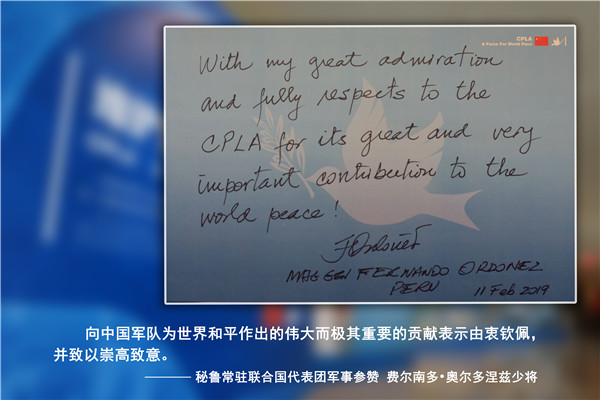 CPLA
A Force For World Peace
With my great admiration
and fully respects to the
CPLA for its great and very
important contribution to the
world peace!
MAG GEN FERNANDO ORDONEZ
PERU 11 Feb 2019
向中国军队为世界和平作出的伟大而极其重要的贡献表示由衷钦佩，
并致以崇高致意。
——— 秘鲁常驻联合国代表团军事参赞 费尔南多·奥尔多涅兹少将